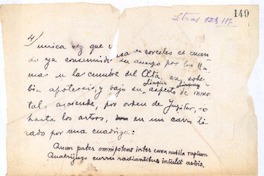 149
4/ unica vez que usa en corceles es cuan
do ya consumido su cuerpo por las lla
mas en la cumbre del Oeta
apoteosis, y bajo su aspecto de inmor
tal asciende, por orden de Jupiter,
hasta los astros, en un carro ti
rado por una cuadriga:
Quem pater omnipotens inter cava nubila raptum
Quadrijugo curru radiantibus intulit astris.